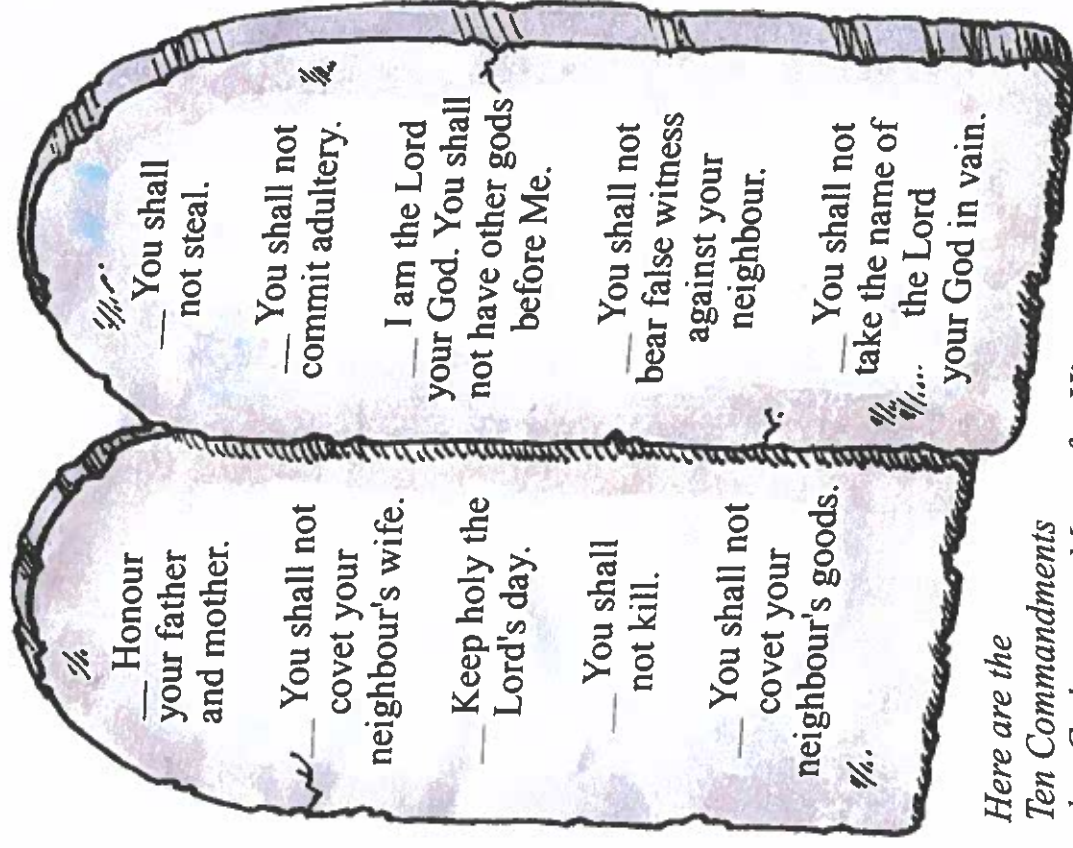 — Honour
your father
and mother.
— You shall not
covet your
neighbour's wife.
— Keep holy the
Lord's day.
— You shall
not kill.
— You shall not
covet your
neighbour's goods.
— You shall
not steal.
— You shall not
commit adultery.
— I am the Lord
your God. You shall
not have other gods
before Me.
— You shall not
bear false witness
against your
neighbour.
— You shall not
take the name of
the Lord
your God in vain.
Here are the
Ten Commandments